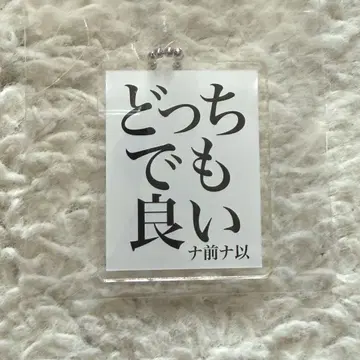 どっち
でも
良い
ナ前ナ以